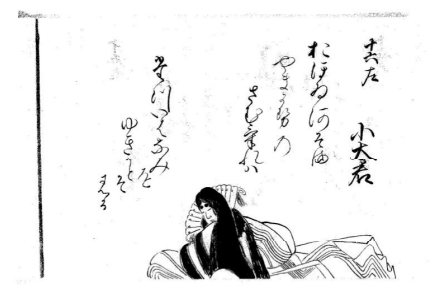 十六左　小大君
おほゐ河そま
やまかせの
さむけれは
たついはなみを
ゆきかとそ
みる